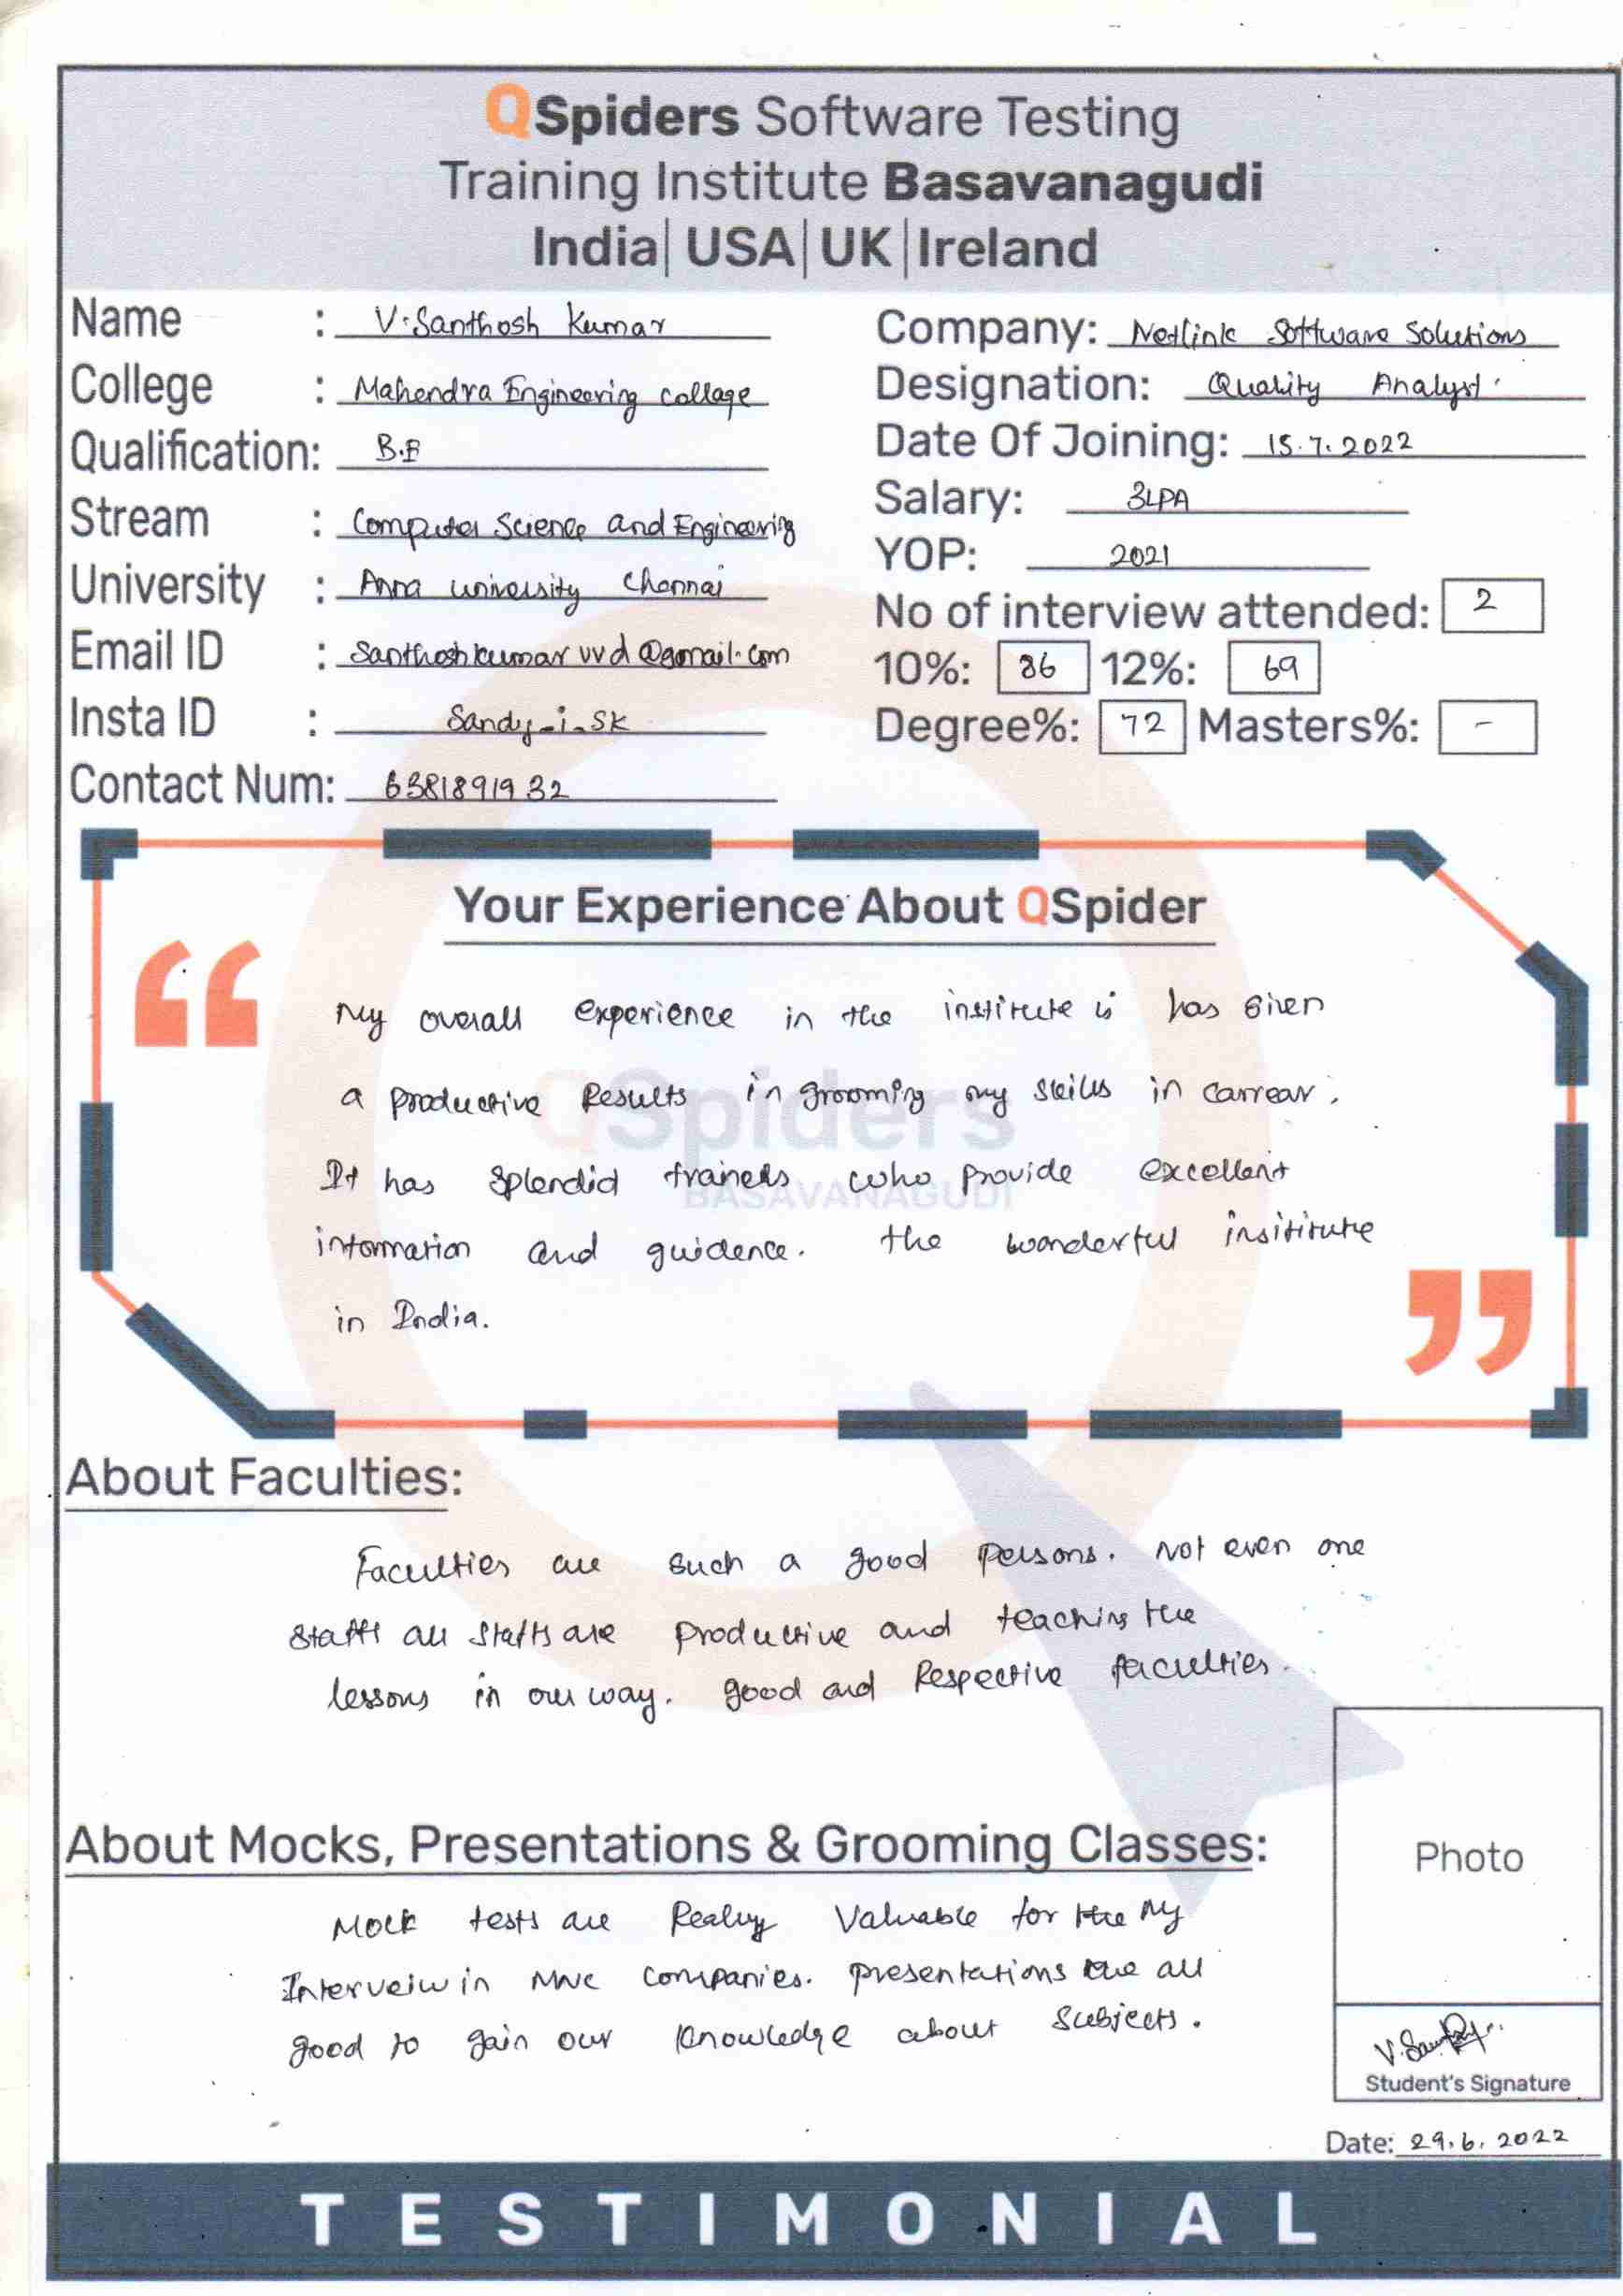 QSpiders Software Testing
Training Institute Basavanagudi
India| USA| UK |Ireland
Name : V. Santhosh Kumar
College : Mahendra Engineering collage
Qualification: B.E
Stream : Computer Science and Engineering
University : Anna university Chennai
Email ID : Santhoshkumar vvd @gmail.com
Insta ID : Sandy_i_SK
Contact Num: 6381891932
Company: Netlink Software Solutions
Designation: Quality Analyst.
Date Of Joining: 15.7.2022
Salary: 3LPA
YOP: 2021
No of interview attended: 2
10%: 86 12%: 69
Degree%: 72 Masters%: -
Your Experience About QSpider
“
My overall experience in the institute is has Given
a productive Results in grooming my skills in carrear.
It has splendid trainers who provide excellent
information and guidence. the wonderful insititute
in India.
”
QSpiders
BASAVANAGUDI
About Faculties:
Faculties are such a good persons. Not even one
staffs all staffs are productive and teaching the
lessons in our way. good and Respective faculties.
About Mocks, Presentations & Grooming Classes:
Mock tests are Really Valuable for the My
Interveiw in MNC companies. presentations are all
good to gain our knowledge about subjects.
Photo
Student's Signature
Date: 29.6.2022
TESTIMONIAL